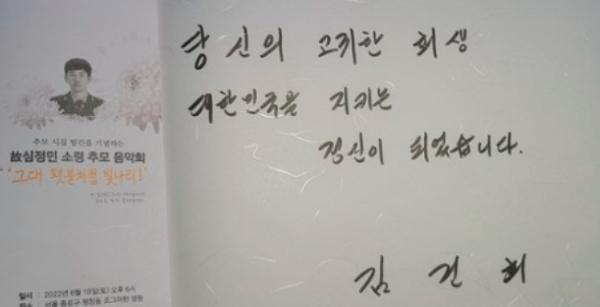 추모 시집 발간을 기념하는
故심정민 소령 추모 음악회
"그대 횃불처럼 빛나리!"
일시 : 2022년 6월 18일(토) 오후 6시
장소 : 서울 종로구 평창동
당신의 고귀한 희생
대한민국을 지키는
정신이 되었습니다.
김건희